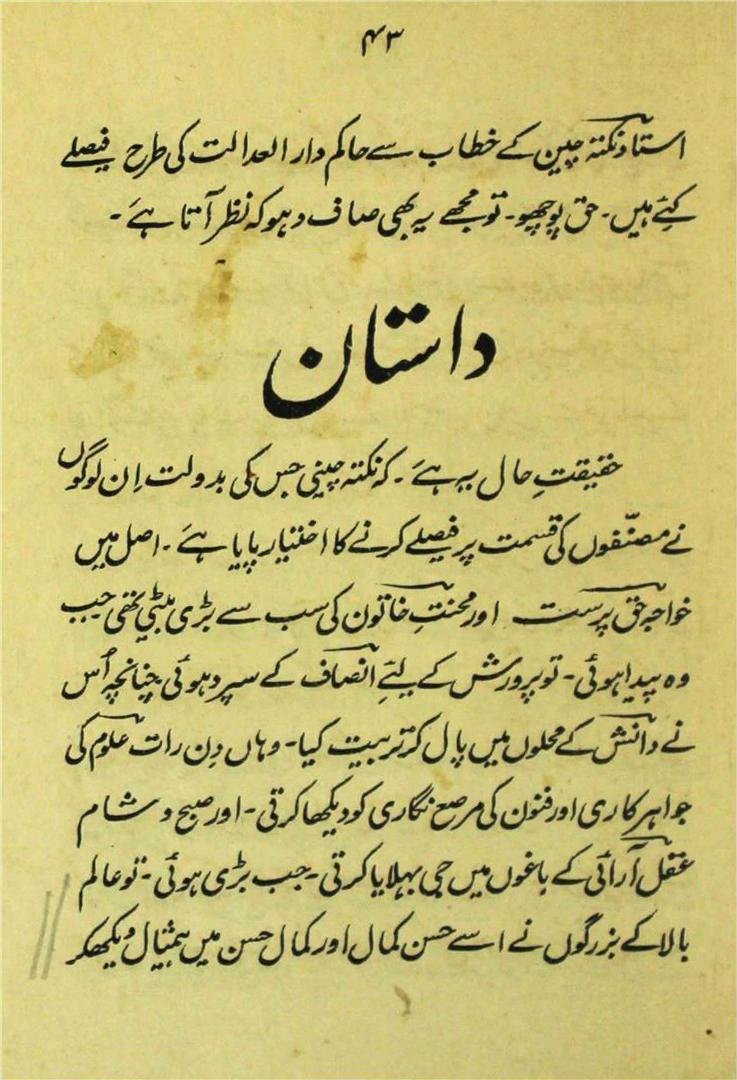 ۴۳
استاد نکتہ چین کے خطاب سے حاکم دار العدالت کی طرح فیصلے
کئے ہیں۔ حق پوچھو۔ تو مجھے یہ بھی صاف دہوکہ نظر آتا ہے۔
داستان
حقیقتِ حال یہ ہے۔ کہ نکتہ چینی جس کی بدولت اِن لوگوں
نے مصنّفوں کی قسمت پر فیصلے کرنے کا اختیار پایا ہے۔ اصل میں
خواجہ حق پرست اور محنت خاتون کی سب سے بڑی بیٹی تھی جب
وہ پیدا ہوئی۔ تو پرورش کے لئے انصاف کے سپرد ہوئی چنانچہ اُس
نے دانش کے محلوں میں پال کر تربیت کیا۔ وہاں دِن رات علوم کی
جواہر کاری اور فنون کی مرصع نگاری کو دیکھا کرتی۔ اور صبح و شام
عقل آرائی کے باغوں میں جی بہلایا کرتی۔ جب بڑی ہوئی۔ تو عالم
بالا کے بزرگوں نے اسے حسن کمال اور کمال حسن میں بیمثال دیکھکر